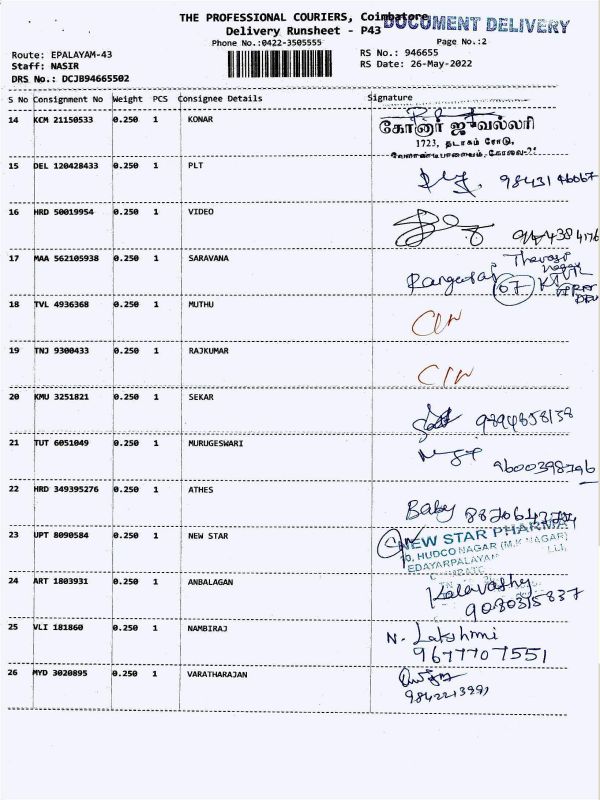 THE PROFESSIONAL COURIERS, Coimbatore
DOCUMENT DELIVERY
Delivery Runsheet - P43
Phone No.:0422-3505555
Page No.:2
Route: EPALAYAM-43
RS No.: 946655
Staff: NASIR
RS Date: 26-May-2022
DRS No.: DCJB94665502
S No Consignment No Weight PCS Consignee Details Signature
14 KCM 21150533 0.250 1 KONAR
கோனார் ஜுவல்லரி
1723, தடாகம் ரோடு,
15 DEL 120428433 0.250 1 PLT
16 HRD 50019954 0.250 1 VIDEO
17 MAA 562105938 0.250 1 SARAVANA
Rangasai 67
18 TVL 4936368 0.250 1 MUTHU
19 TNJ 9300433 0.250 1 RAJKUMAR
20 KMU 3251821 0.250 1 SEKAR
9894858138
21 TUT 6051049 0.250 1 MURUGESWARI
9600398796
22 HRD 349395276 0.250 1 ATHES
Baby
23 UPT 8090584 0.250 1 NEW STAR
NEW STAR PHARMA
HUDCO NAGAR (M.K NAGAR)
EDAYARPALAYAM
24 ART 1803931 0.250 1 ANBALAGAN
Kalavathy
9080315837
25 VLI 181860 0.250 1 NAMBIRAJ
N. Lakshmi
9677707551
26 MYD 3020895 0.250 1 VARATHARAJAN